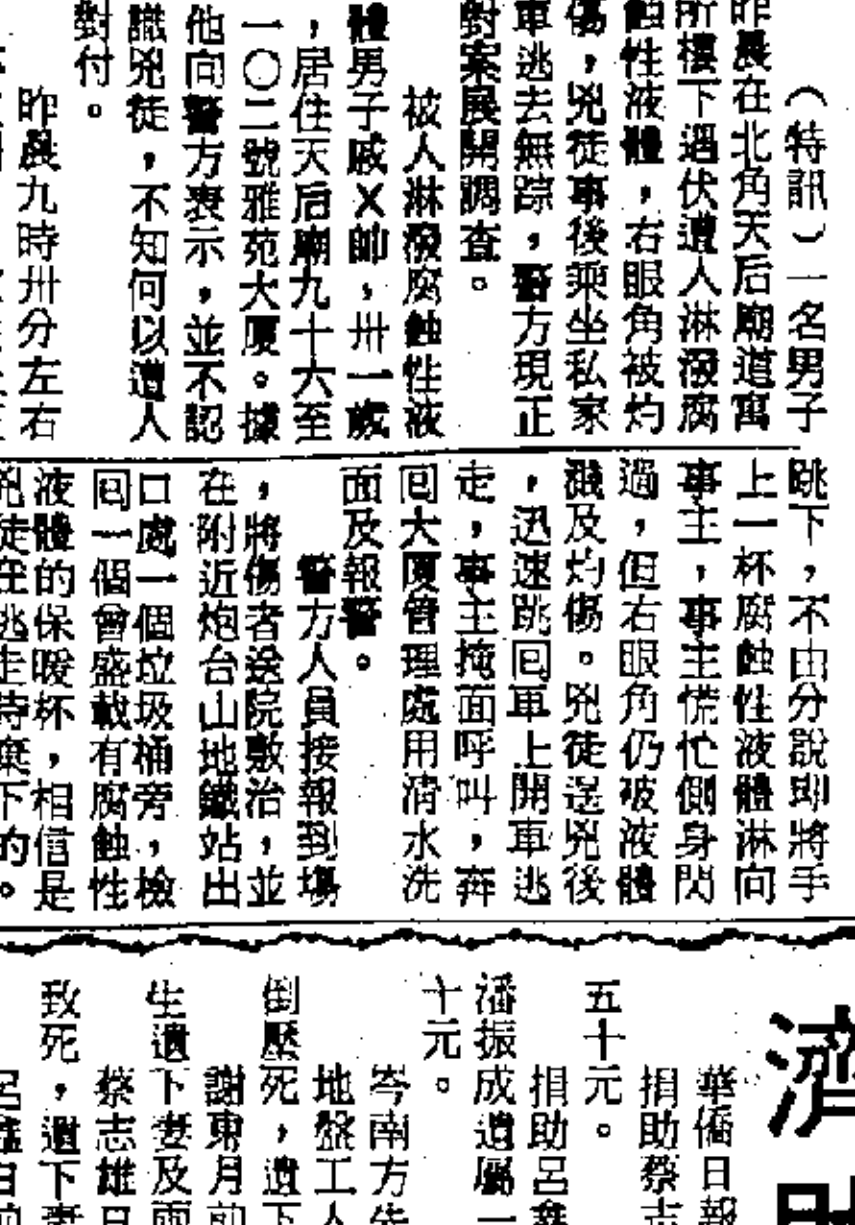 （特訊）一名男子
昨晨在北角天后廟道寓
所樓下遇伏遭人淋潑腐
蝕性液體，右眼角被灼
傷，兇徒事後乘坐私家
車逃去無踪，警方現正
對案展開調查。
被人淋潑腐蝕性液
體男子戚X帥，卅一歲
，居住天后廟九十六至
一〇二號雅苑大厦。據
他向警方表示，並不認
識兇徒，不知何以遭人
對付。
昨晨九時卅分左右
跳下，不由分說即將手
上一杯腐蝕性液體淋向
事主，事主慌忙側身閃
過，但右眼角仍被液體
濺及灼傷。兇徒逞兇後
，迅速跳囘車上開車逃
走，事主掩面呼叫，奔
囘大厦管理處用清水洗
面及報警。
警方人員接報到塲
，將傷者送院敷治，並
在附近炮台山地鐵站出
口處一個垃圾桶旁，檢
囘一個曾盛載有腐蝕性
液體的保暖杯，相信是
兇徒在逃走時棄下的。
濟
華僑日報
捐助蔡志
五十元。
捐助呂
潘振成遺屬一
十元。
岑南方先
地盤工人
倒壓死，遺下
謝東月前
生遺下妻及兩
蔡志雄日
致死，遺下妻